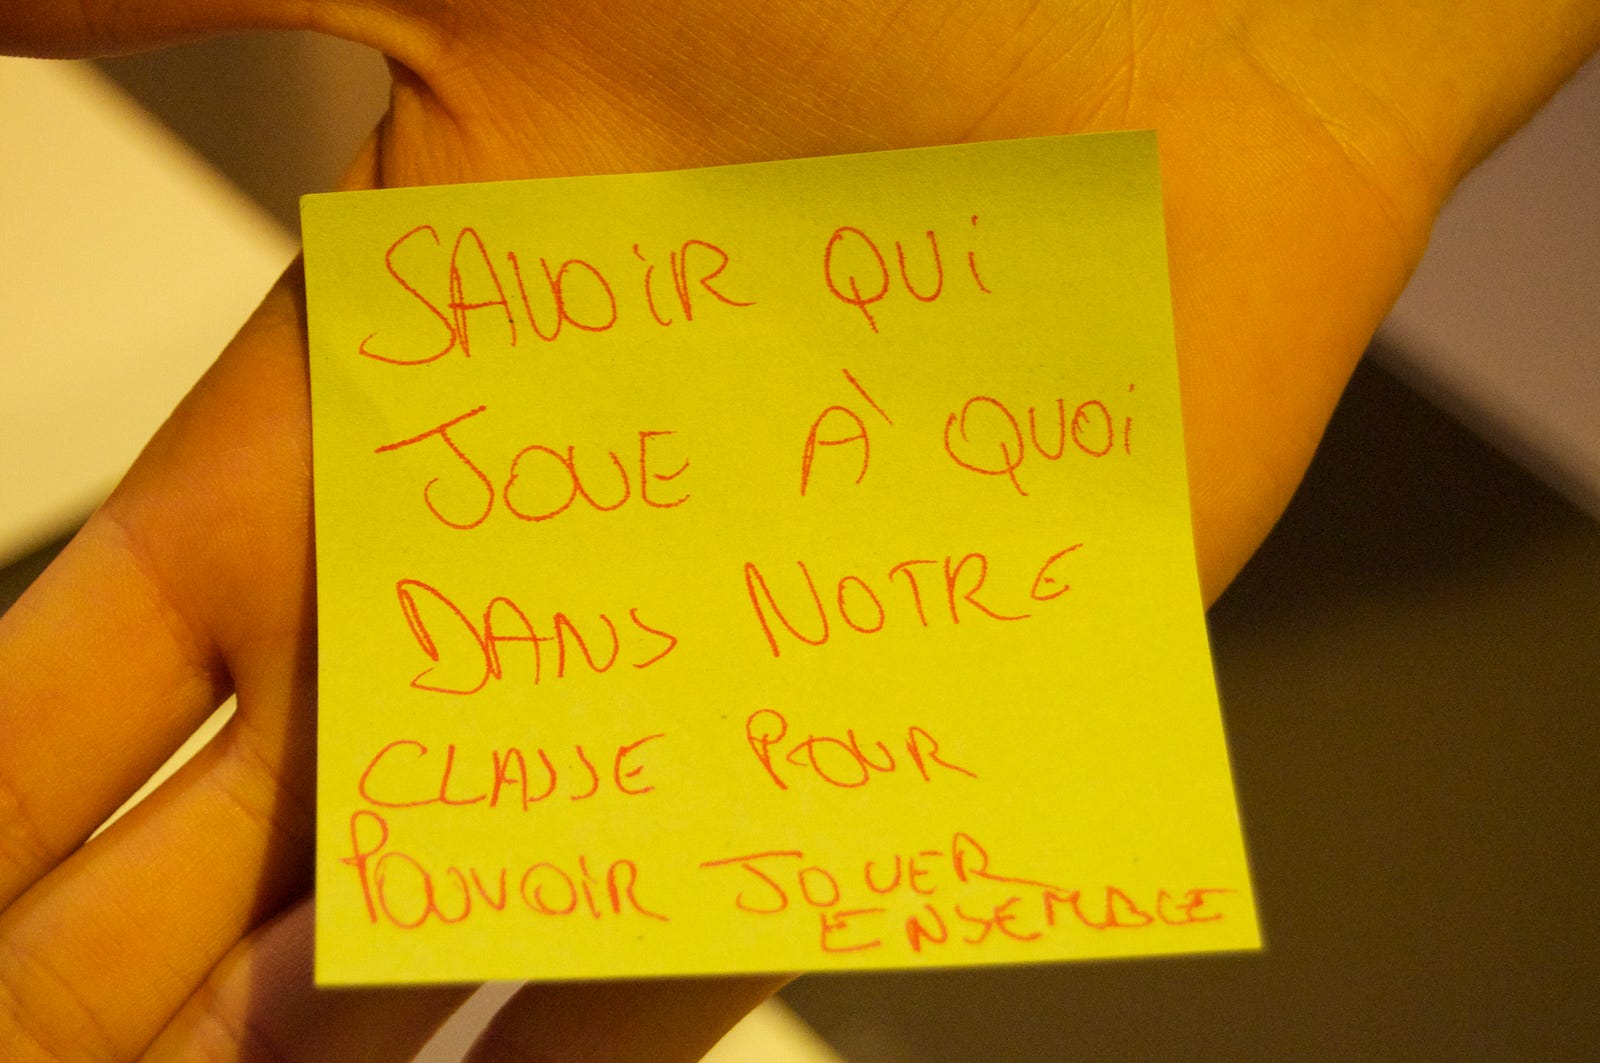 SAVOiR QUi
JOUE À QUOi
DANS NOTRE
CLASSE POUR
POUVOiR JOUER
ENSEMBLE